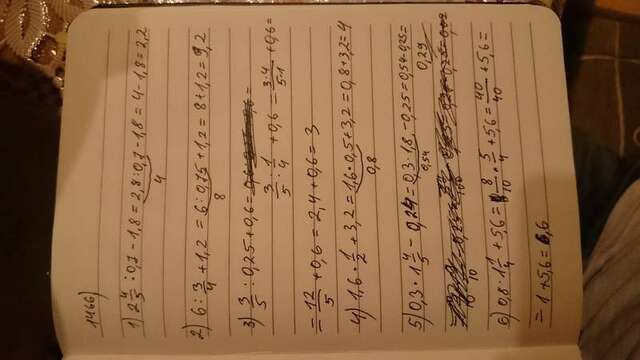 1466)
1) 2 4/5 : 0,7 - 1,8 = 2,8 : 0,7 - 1,8 = 4 - 1,8 = 2,2
4
2) 6 : 3/4 + 1,2 = 6 : 0,75 + 1,2 = 8 + 1,2 = 9,2
8
3) 3/5 : 0,25 + 0,6 =
3/5 : 1/4 + 0,6 = 3·4/5·1 + 0,6 =
= 12/5 + 0,6 = 2,4 + 0,6 = 3
4) 1,6 · 1/2 + 3,2 = 1,6 · 0,5 + 3,2 = 0,8 + 3,2 = 4
0,8
5) 0,3 · 1 4/5 - 0,25 = 0,3 · 1,8 - 0,25 = 0,54 - 0,25 =
0,54 0,29
6) 0,8 : 1/4 + 5,6 = 8/10 · 5/4 + 5,6 = 40/40 + 5,6 =
= 1 + 5,6 = 6,6